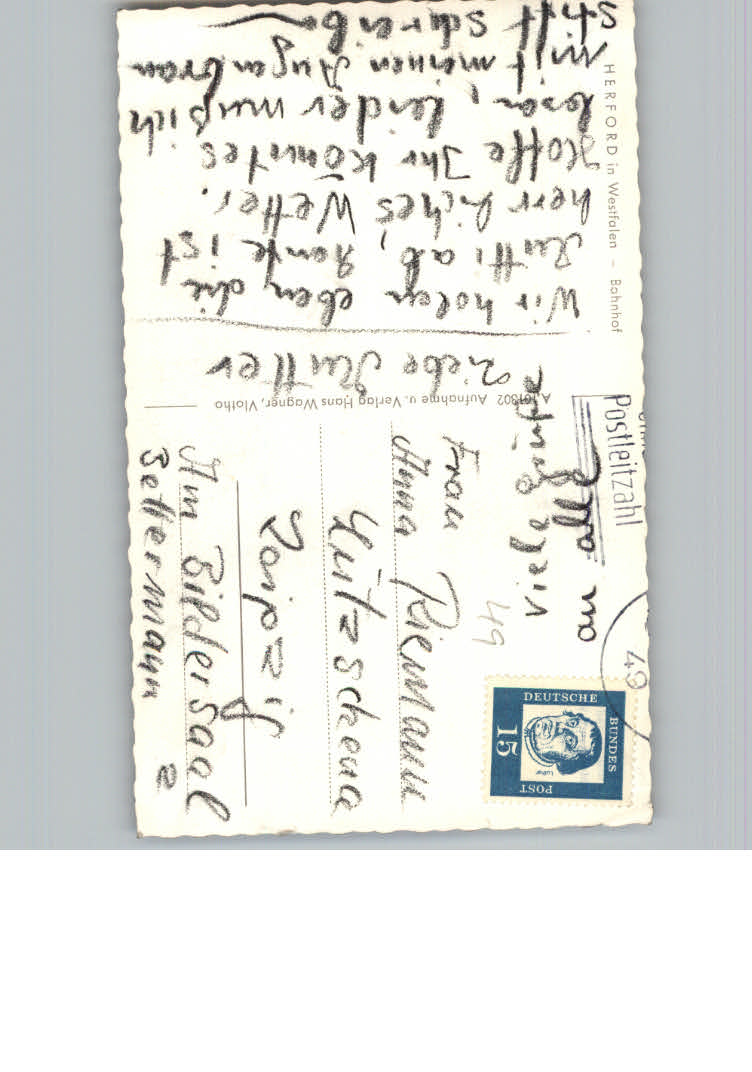 HERFORD in Westfalen – Bahnhof
Liebe Mutter
Wir holen eben die
Mutti ab, Heute ist
herrliches Wetter.
Hoffe Ihr könntes
lesen, leider muß ich
mit meinen Augenbrau
stift schreiben
A 101802 Aufnahme u. Verlag Hans Wagner, Vlotho
Postleitzahl
49
DEUTSCHE
BUNDES
POST
15
Luther
Viele Grüße
an alle
49
Frau
Anna Riemann
Lützschena
Leipzig
Am Bildersaal
2